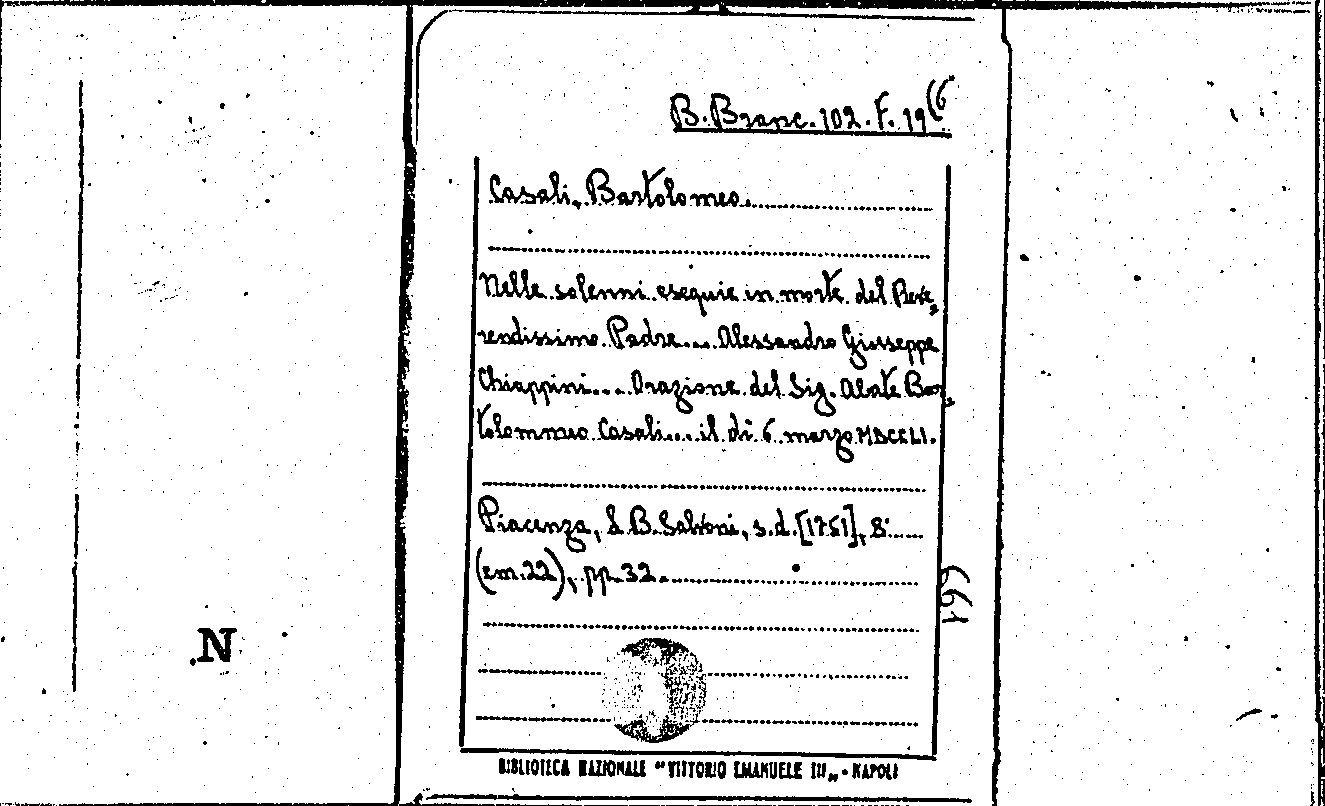 B. Branc. 102. F. 19(6
Casali, Bartolomeo.
Nelle solenni esequie in morte del Reve„
rendissimo Padre.... Alessandro Giuseppe
Chiappini.... Orazione del Sig. Abate Bar„
tolommeo Casali.... il dì 6 marzo MDCCLI.
Piacenza, L. B. Salvoni, s.d. [1751], 8°
(cm. 22), pp. 32.
199
N
BIBLIOTECA NAZIONALE “VITTORIO EMANUELE III„ - NAPOLI